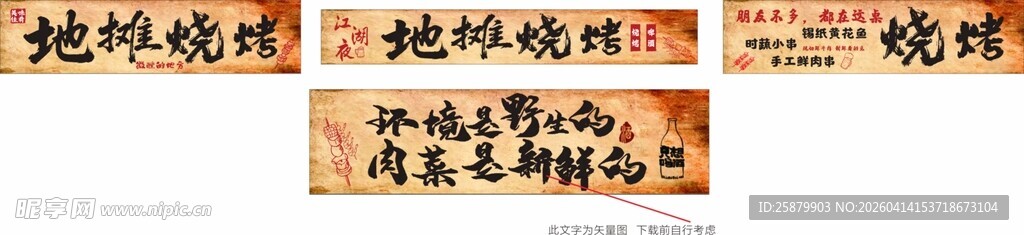 地摊烧烤
江湖夜
地摊烧烤
烧烤
啤酒
朋友不多，都在这桌
锡纸黄花鱼
时蔬小串
手工鲜肉串
烧烤
环境是野生的
肉菜是新鲜的
此文字为矢量图 下载前自行考虑
昵享网 www.nipic.cn
ID:25879903 NO:20260414153718673104